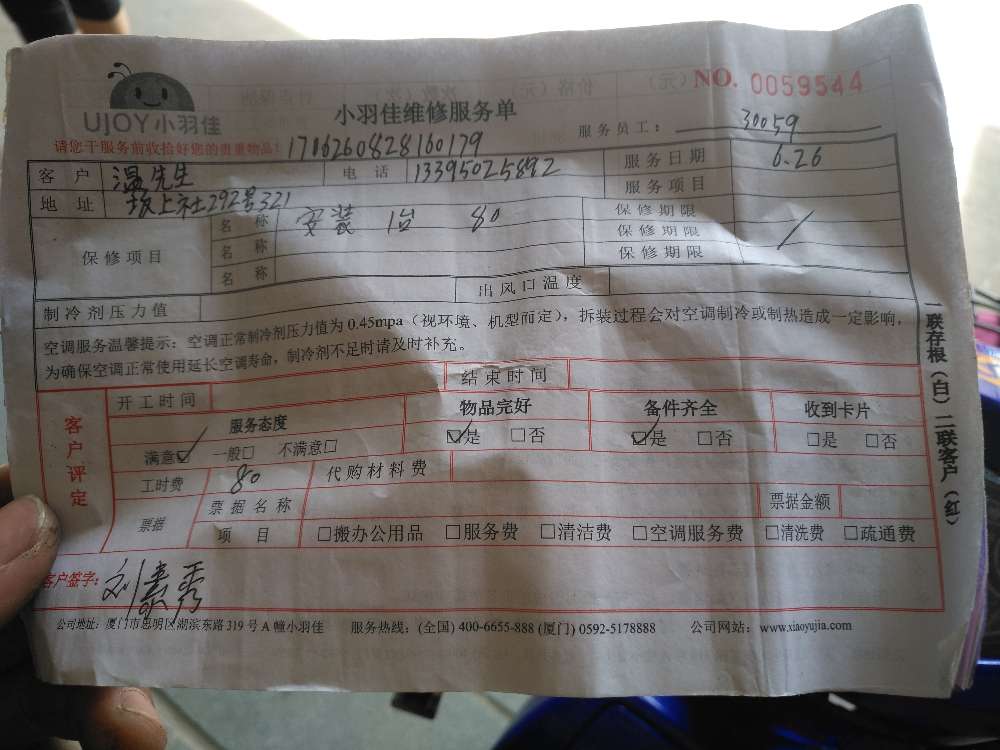 UJOY小羽佳
小羽佳维修服务单
NO. 0059544
请您于服务前收拾好您的贵重物品! 1706260828160179
服务员工: 30059
客 户 温先生 电 话 13395025892 服务日期 6.26
地 址 坂上社292号321 服务项目
保修项目 名 称 安装 1台 80 保修期限 /
名 称 保修期限
名 称 保修期限
制冷剂压力值 出风口温度
空调服务温馨提示: 空调正常制冷剂压力值为0.45mpa(视环境、机型而定), 拆装过程会对空调制冷或制热造成一定影响,
为确保空调正常使用延长空调寿命, 制冷剂不足时请及时补充。
客户评定 开工时间 结束时间
服务态度 物品完好 备件齐全 收到卡片
满意☑ 一般□ 不满意□ ☑是 □否 ☑是 □否 □是 □否
工时费 80 代购材料费
票据 票据名称 票据金额
项 目 □搬办公用品 □服务费 □清洁费 □空调服务费 □清洗费 □疏通费
客户签字:
公司地址: 厦门市思明区湖滨东路319号A幢小羽佳 服务热线: (全国) 400-6655-888 (厦门) 0592-5178888 公司网站: www.xiaoyujia.com
一联存根(白) 二联客户(红)